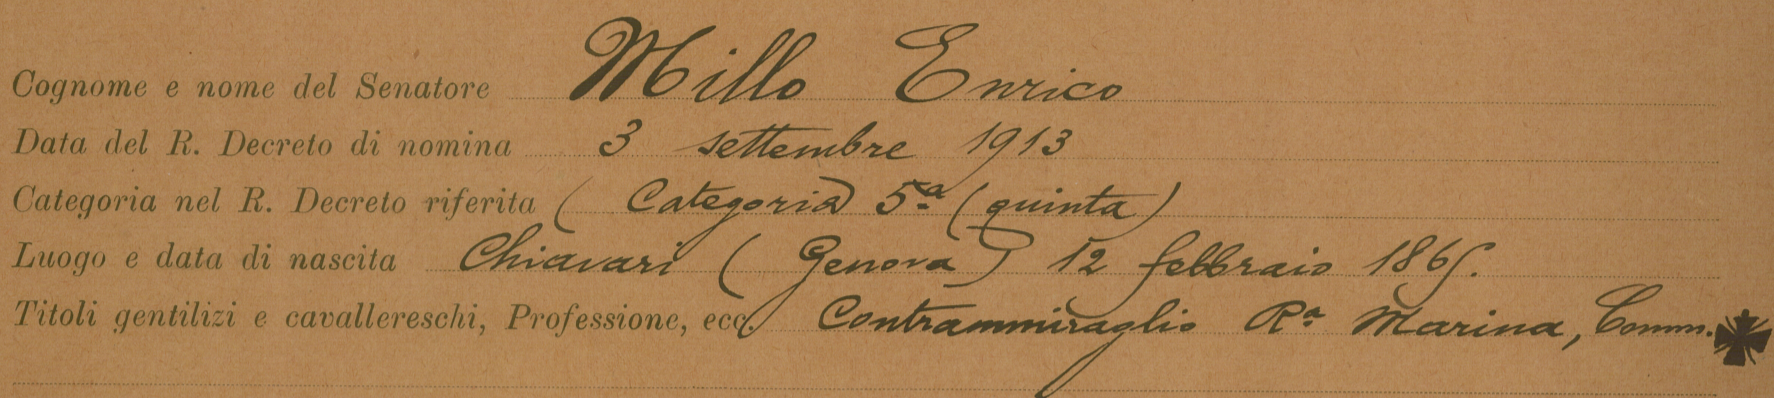 Cognome e nome del Senatore Millo Enrico
Data del R. Decreto di nomina 3 settembre 1913
Categoria nel R. Decreto riferita ( Categoria) 5ª (quinta)
Luogo e data di nascita Chiavari (Genova) 12 febbraio 1865.
Titoli gentilizi e cavallereschi, Professione, ecc. Contrammiraglio Rª Marina, Comm. ✠